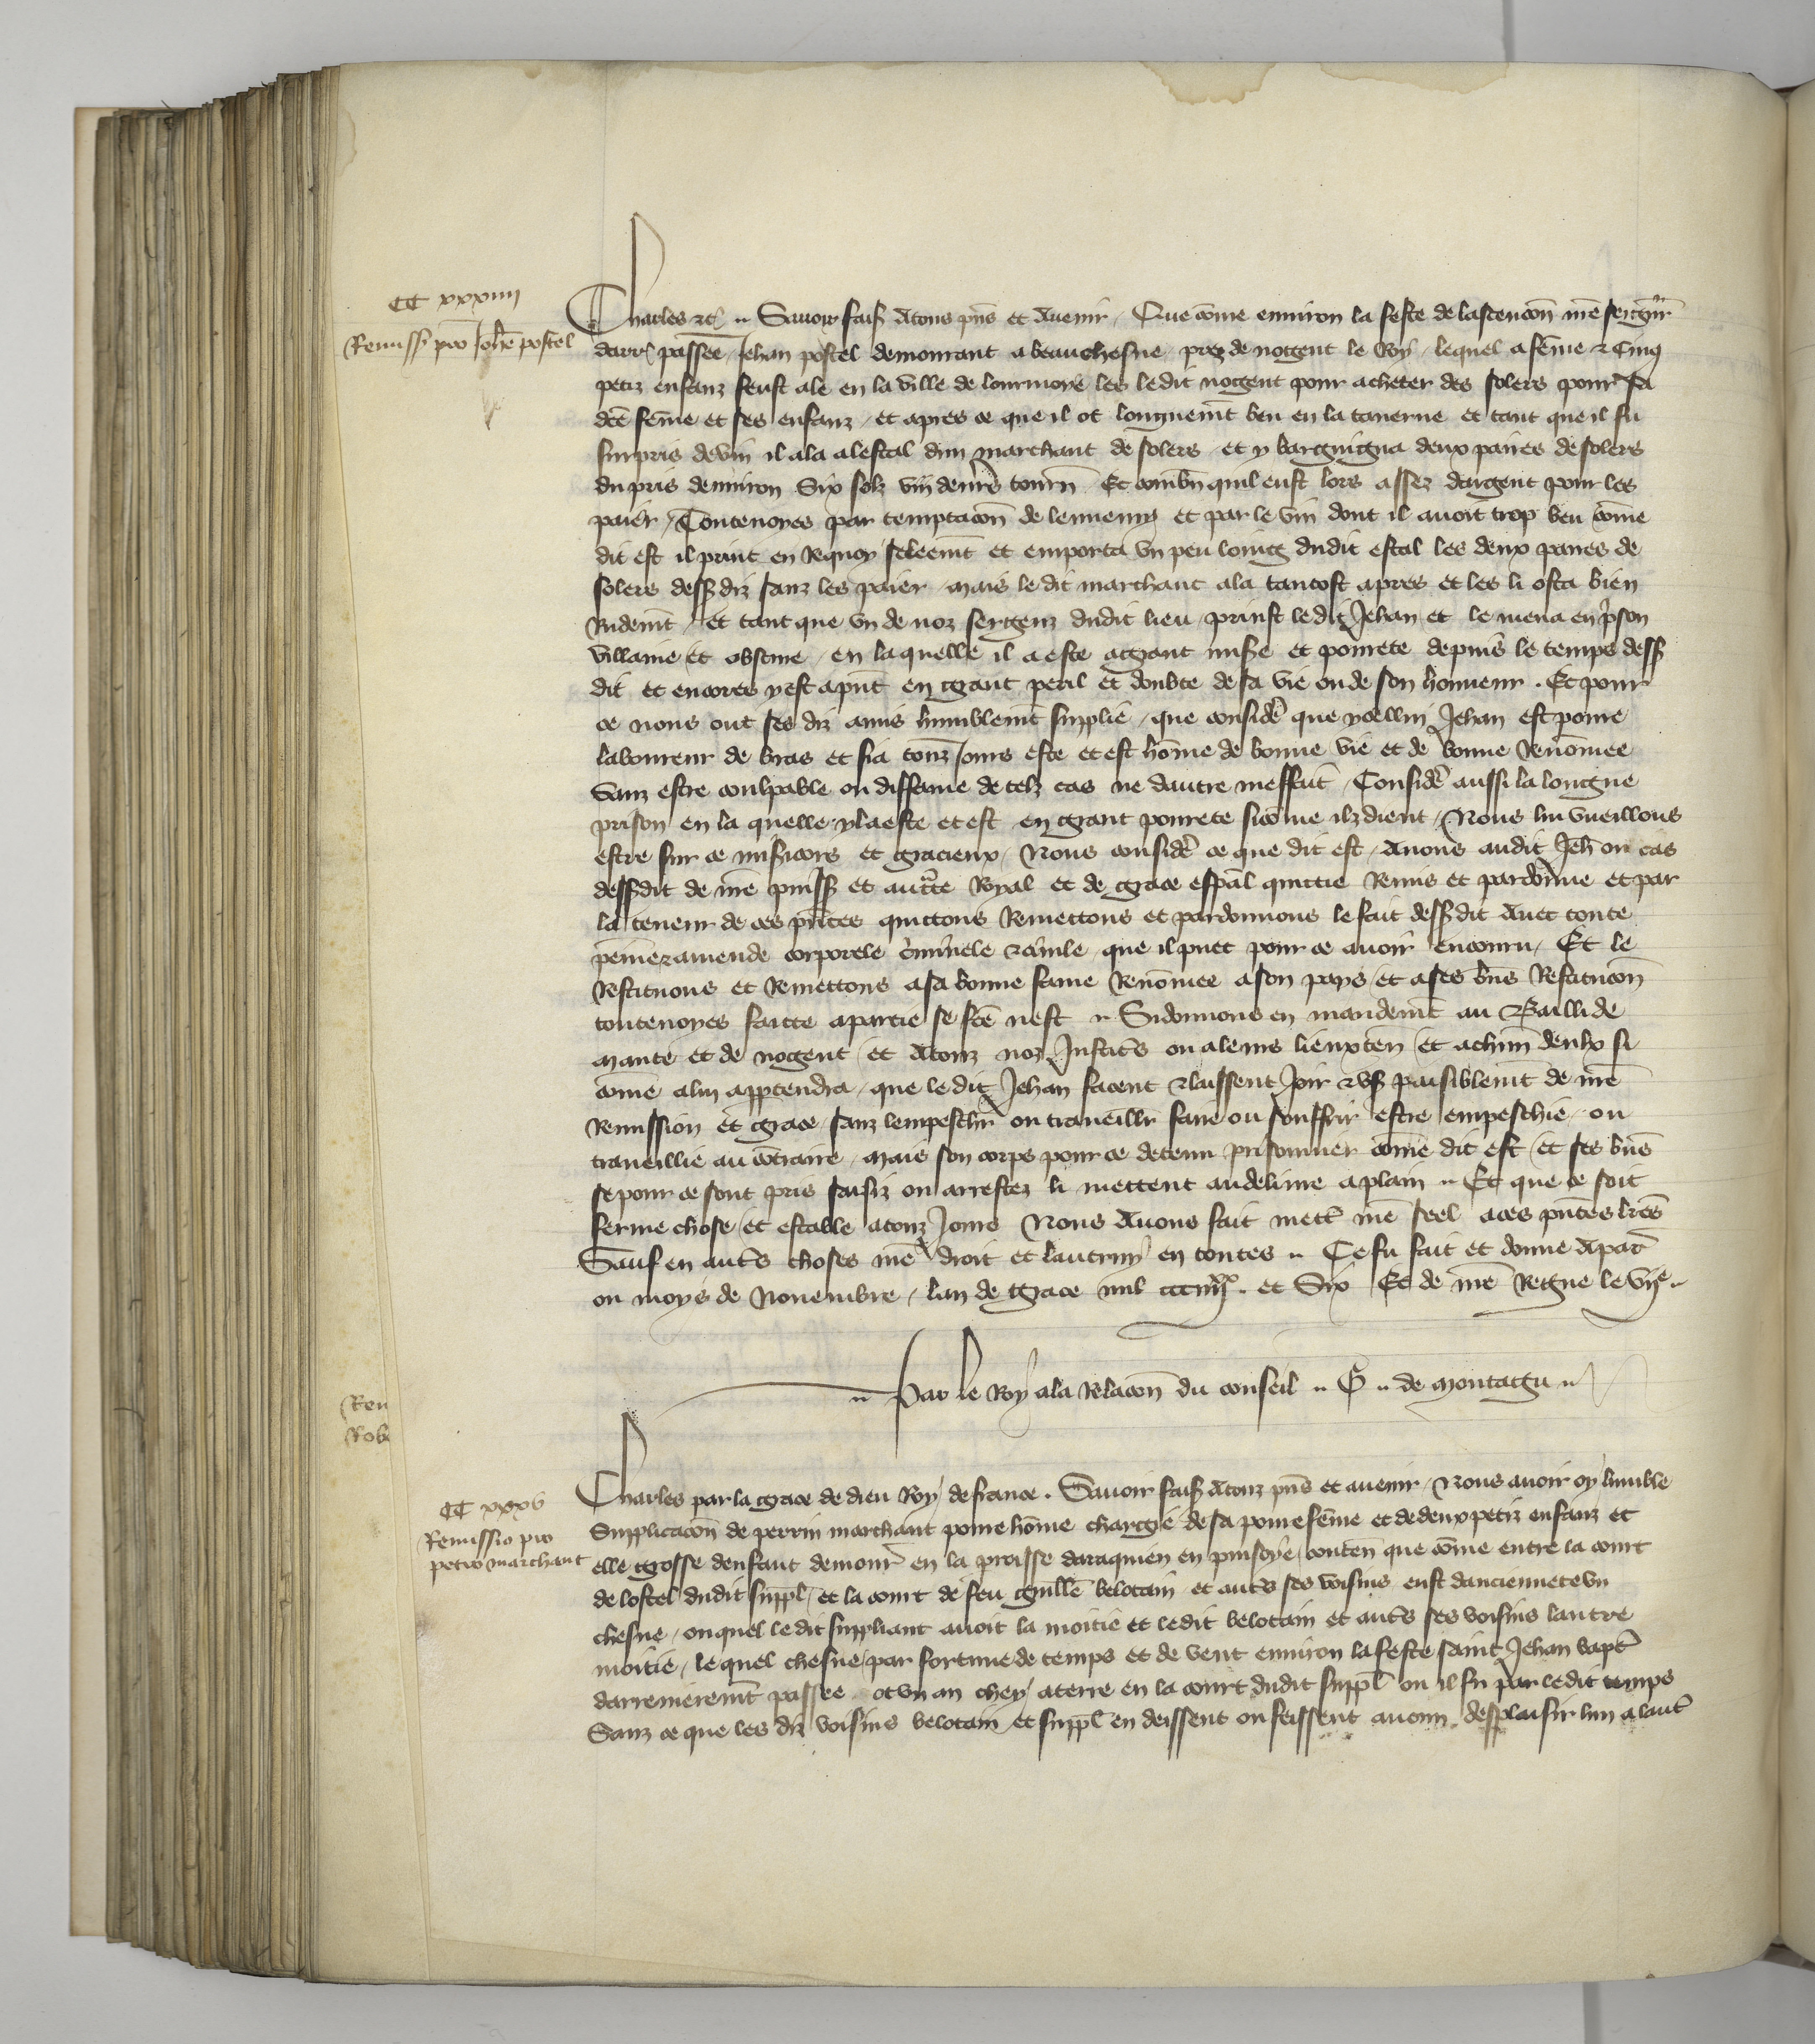 CC xxxiiii
Remiss̄ pro Joh̄e postel
Charles etc̄ .. Sauoir fais̄ Atous pn̄s et Auenir / Que cōme enuiron la feste de lascencōn nr̄e seign̄r
darr̄ passee / Jehan postel demourant a beauchesne prez de nogent le Roy / lequel a fēme et Cinq
petiz enfanz feust ale en la ville de lourmoye les ledit nogent pour acheter des solers pour sa
dc̄e fēme et ses enfanz / et apres ce que il ot longuemt̄ beu en la tauerne et tant que il fu
surpris de vin il ala a lestal dun marchant de solers et y barguigna deux paires de solers
du pris denuiron Six solz viii deniers tourn̄ Et combn̄ quil eust lors assez dargent pour les
paier / Toutenoyes par temptacōn de lennemy et par le vin dont il auoit trop beu cōme
dit est il print en Requoy seleemt̄ et emporta vn peu loing dudit estal les deux paires de
solers dess̄ diz sanz les paier / mais le dit marchant ala tantost apres et les li osta bien
Rudemt̄ / et tant que vn de noz sergenz dudit lieu prinst ledit Jehan et le mena en p̄son
villaine et obscure / en laquelle il a este a grant mis̄e et pourete depuis le temps dess̄
dit et encores y est a pn̄t en grant peril et doubte de sa vie ou de son honneur . Et pour
ce nous ont ses diz amis humblemt̄ supplie / que consider̄ que ycellui Jehan est poure
laboureur de bras et si a touz iours este et est hōme de bonne vie et de bonne Renōmee
Sanz estre coulpable ou diffame de telz cas ne dautre meffait / Consider̄ aussi la longue
prison en la quelle yl a este et est en grant pourete si cōme ilz dient / Nous lui vueillons
estre sur ce mis̄icors et gracieux / Nous consider̄ ce que dit est / Auons audit Jeh̄ ou cas
dess̄dit de nr̄e puiss̄ et auct̄te Royal et de grace esp̄al quictie Remis et pardonne et par
la teneur de ces pn̄tes quictons Remettons et pardonnons le fait dess̄ dit Auec toute
peine et amende corporele cr̄iminele et ciuile que il puet pour ce auoir encouru / Et le
Restituons et Remettons a sa bonne fame Renōmee a son pays et a ses bn̄s Restitucōn
toutenoyes faicte a partie se fc̄e nest .. Si donnons en mandemt̄ au Bailli de
mante et de nogent et Atouz noz Justic̄s ou a leurs lieuxten̄ et a chūn deulx si
cōme a lui app̄tendra / que le dit Jehan facent et laissent Joir et vs̄ paisiblemt̄ de nr̄e
Remission et grace sanz lempeschr̄ ou traueillr̄ faire ou souffrir estre empeschie ou
traueillie au cōtraire / mais son corps pour ce detenu prisonnier cōme dit est et ses bn̄s
se pour ce sont pris saisiz ou arrestez li mettent au deliure a plain .. Et que ce soit
ferme chose et estable a touz Jours Nous Auons fait mett̄ nr̄e seel a ces pn̄tes lrēs
Sauf en aut̄s choses nr̄e droit et lautruy en toutes .. Ce fu fait et donne A par̄
ou moys de Nouembre / lan de grace mil ccc iiiixx. et Six Et de nr̄e Regne le vije ..
.. Par le Roy a la Relacōn du conseil .. G .. de montagu ..
Rem
Robe
CC xxxv
Remissio pro
petro marchant
Charles par la grace de dieu Roy de france . Sauoir fais̄ Atouz pn̄s et auenir / Nous auoir oy lumble
Supplicacōn de perrin marchant poure hōme chargie de sa poure fēme et de deux petiz enfanz et
elle grosse denfant demour̄ en la parroisse daraquien en puisoye / conten̄ que cōme entre la court
de lostel dudit suppl̄ / et la court de feu guill̄e belotain et aut̄s ses voisins eust danciennete vn
chesne / ouquel le dit suppliant auoit la moitie et ledit belotain et aut̄s ses voisins lautre
moitie / lequel chesne par fortune de temps et de vent enuiron la feste saint Jehan bapt̄
darrenieremt̄ passee ot vn an chey a terre en la court dudit suppl̄ ou il fu par ledit temps
Sanz ce que les diz voisins belotain et suppl̄ en deissent ou feissent aucun desplaisir lun a laut̄